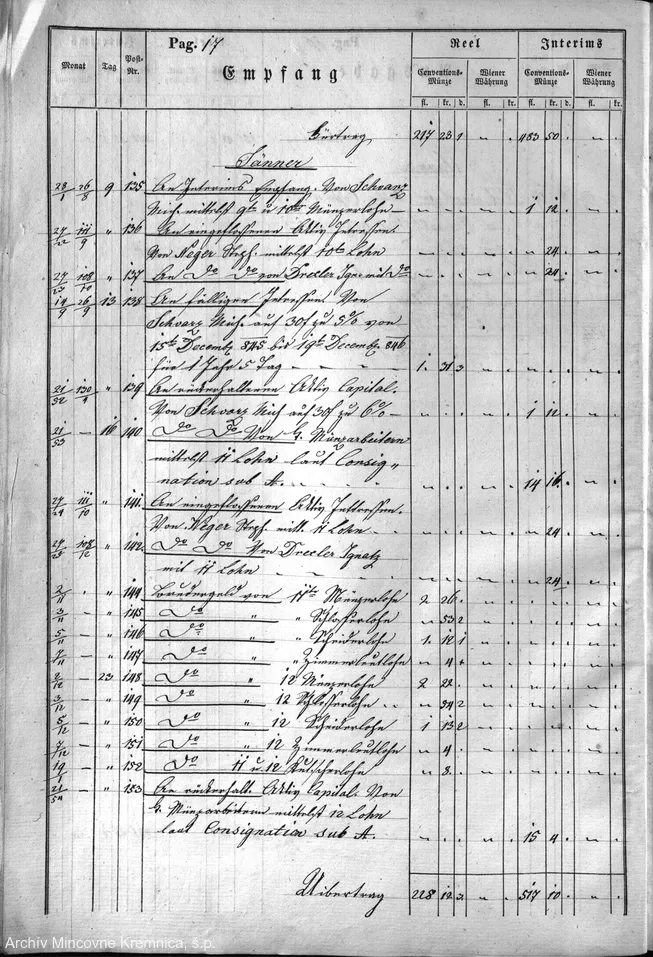 Pag. 17
Monat Tag Post-Nr. Empfang Reel Interims
Conventions-Münze Wiener Währung Conventions-Münze Wiener Währung
fl. kr. d. fl. kr. fl. kr. d. fl. kr.
Fürtrag 217 23 1 " " 483 50 . " "
Jänner
28/1 26/8 9 135 An Interims Empfang. Von Schwarz
Mich. mittelst 9te u 10te Münzerlohn – " " . " " 1 12 . " "
27/22 111/9 " 136 An eingeflossenen Aktiv Intressen.
Von Neger Steph. mittelst 10te Lohn " " . " " " 24 . " "
27/23 108/10 " 137 An Do Do von Drexler Igna. mit Do " " . " " " 24 . " "
19/9 26/9 13 138 An fälligen Intressen Von
Schwarz Mich. auf 30f zu 5% von
15te Decemb. 845 bis 19te Decemb. 846
für 1 Jahr 5 Tag – – – – 1. 31 3 " " " " . " "
21/52 130/4 " 139 An rückerhaltenen Aktiv Capital.
Von Schwarz Mich auf 30f zu 6% – " " . " " 1 12 . " "
21/53 – 16 140 Do Do Von k. Münzarbeitern
mittelst 11 Lohn laut Consig„
nation sub A. – – – – " " . " " 14 16. . " "
27/24 111/10 " 141. An eingeflossenen Aktiv Intressen.
Von Neger Steph. mitt. 11 Lohn – " " . " " " 24 . " "
27/25 108/12 " 142. Do Do Von Drexler Ignatz
mit 11 Lohn – – – – " " . " " " 24 . " "
2/11 " " 144 Brudergeld von 11te Münzerlohn 2 26. . " " " " . " "
3/11 – " 145 Do " " Schlosserlohn " 53 2 " " " " . " "
5/11 – " 146 Do " " Scheiderlohn 1. 12 1 " " " " . " "
7/11 – " 147 Do " Zimmerleutlohn " 4 + " " " " . " "
2/12 – 23 148 Do " 12 Münzerlohn 2 22. . " " " " . " "
3/12 – " 149 Do " 12 Schlosserlohn . " 34 2 " " " " . " "
5/12 – " 150 Do " 12 Scheiderlohn 1 13 2 " " " " . " "
7/12 – " 151 Do " 12 Zimmerleutlohn " 4 . " " " " . " "
19/1 – " 152 Do 11 u. 12 Kutscherlohn " 8. . " " " " . " "
21/54 – " 153 An rückerhalt. Aktiv Capital. Von
k. Münzarbeitern mittelst 12 Lohn
laut Consignation sub A. " " . " " 15 4 . " "
Uibertrag 228 12 3 " " 517 10 . " "
Archív Mincovne Kremnica, š.p.